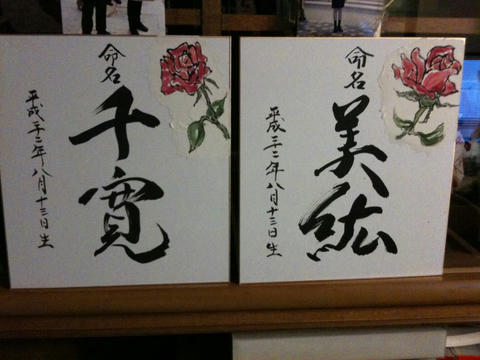 命名
美紘
平成二十二年八月十三日生
命名
千寛
平成二十二年八月十三日生